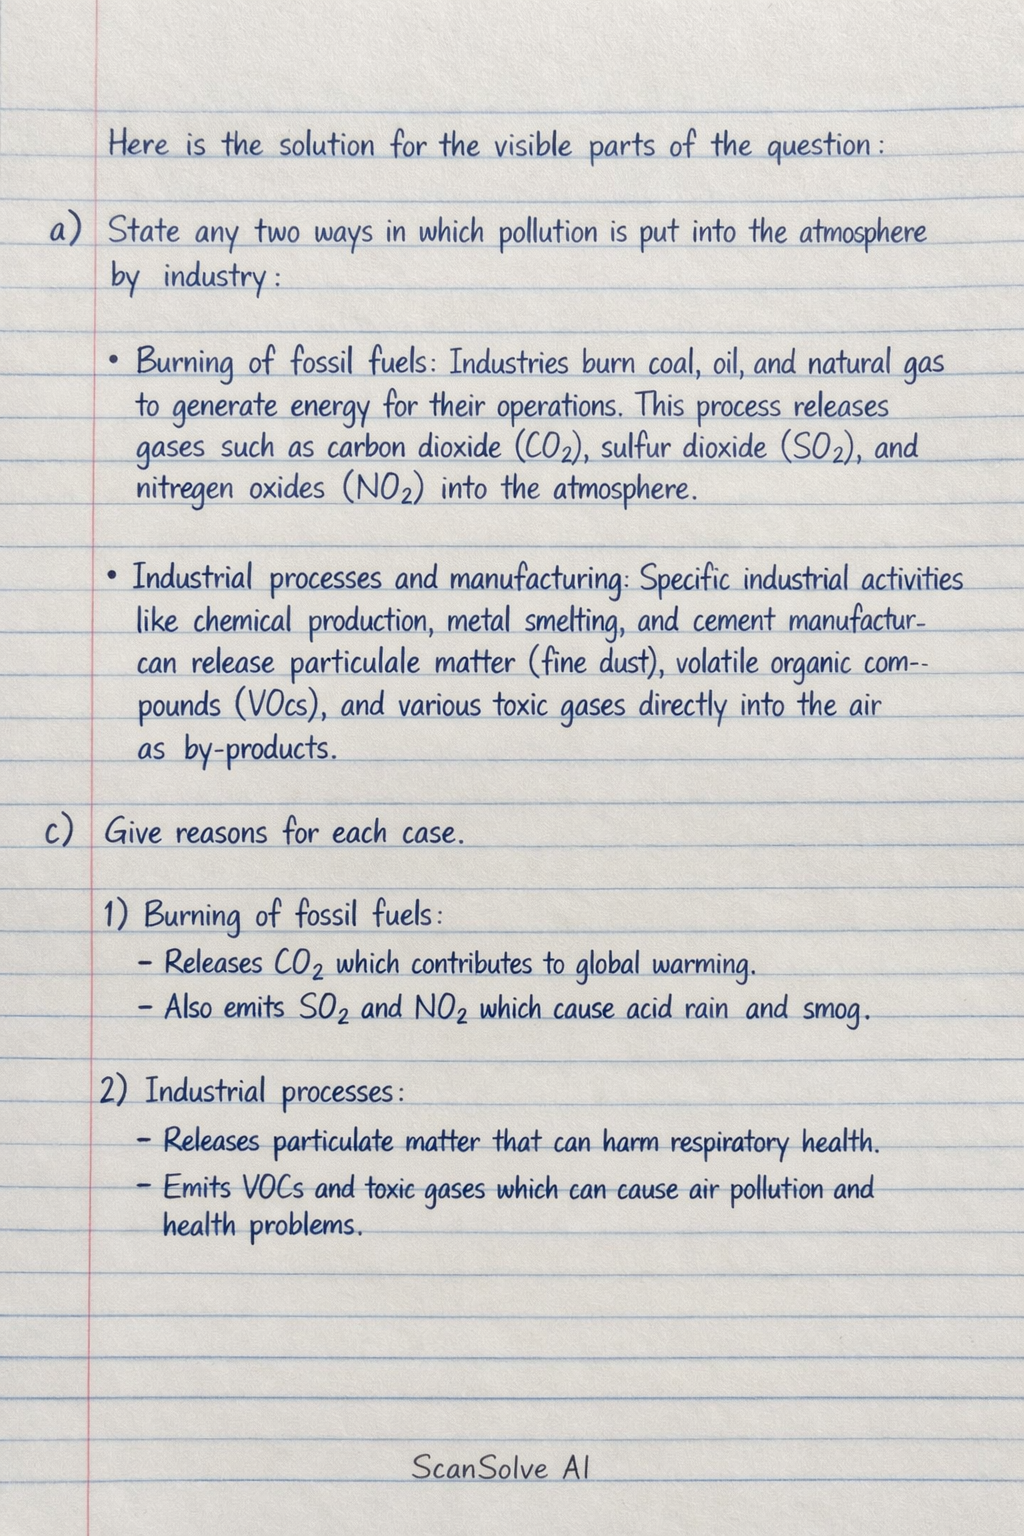 Here is the solution for the visible parts of the question:
a) State any two ways in which pollution is put into the atmosphere
by industry:
• Burning of fossil fuels: Industries burn coal, oil, and natural gas
to generate energy for their operations. This process releases
gases such as carbon dioxide (CO₂), sulfur dioxide (SO₂), and
nitregen oxides (NO₂) into the atmosphere.
• Industrial processes and manufacturing: Specific industrial activities
like chemical production, metal smelting, and cement manufactur-
can release particulale matter (fine dust), volatile organic com--
pounds (VOcs), and various toxic gases directly into the air
as by-products.
c) Give reasons for each case.
1) Burning of fossil fuels:
- Releases CO₂ which contributes to global warming.
- Also emits SO₂ and NO₂ which cause acid rain and smog.
2) Industrial processes:
- Releases particulate matter that can harm respiratory health.
- Emits VOCs and toxic gases which can cause air pollution and
health problems.
ScanSolve AI